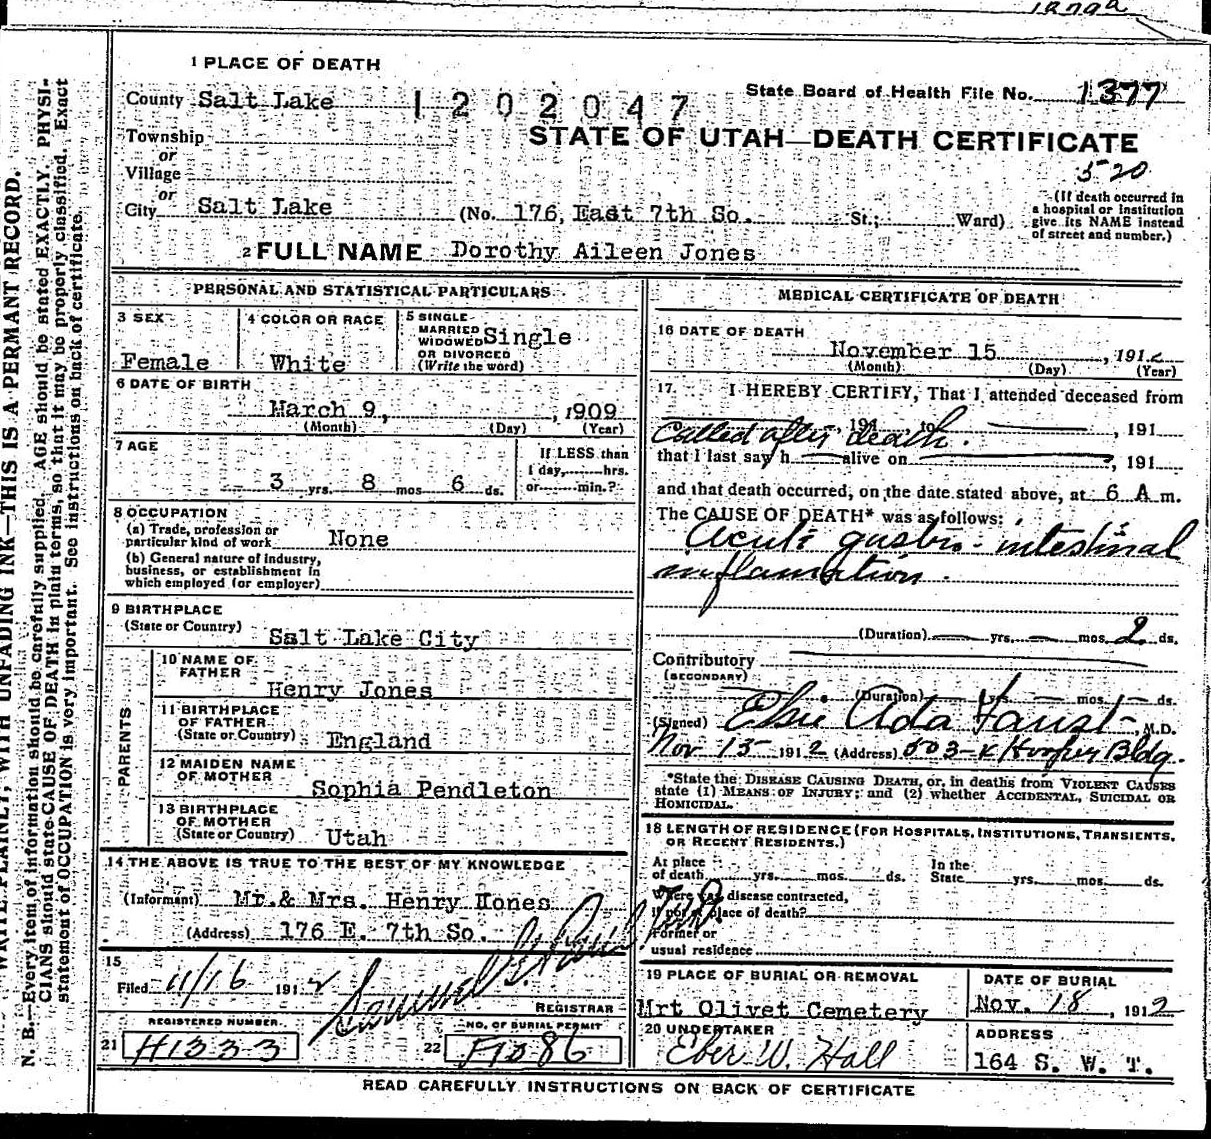 1 PLACE OF DEATH
County Salt Lake
1 2 0 2 0 4 7
State Board of Health File No. 1377
STATE OF UTAH—DEATH CERTIFICATE
Township
or
Village
or
City Salt Lake (No. 176, East 7th So. St.; Ward)
520
(If death occurred in
a hospital or institution
give its NAME instead
of street and number.)
2 FULL NAME Dorothy Aileen Jones
PERSONAL AND STATISTICAL PARTICULARS
3 SEX
Female
4 COLOR OR RACE
White
5 SINGLE
MARRIED
WIDOWED Single
OR DIVORCED
(Write the word)
6 DATE OF BIRTH
March 9, , 1909
(Month) (Day) (Year)
7 AGE
3 yrs. 8 mos 6 ds.
If LESS than
1 day, hrs.
or min.?
8 OCCUPATION
(a) Trade, profession or
particular kind of work None
(b) General nature of industry,
business, or establishment in
which employed (or employer)
9 BIRTHPLACE
(State or Country)
Salt Lake City
PARENTS
10 NAME OF
FATHER
Henry Jones
11 BIRTHPLACE
OF FATHER
(State or Country) England
12 MAIDEN NAME
OF MOTHER
Sophia Pendleton
13 BIRTHPLACE
OF MOTHER
(State or Country) Utah
14 THE ABOVE IS TRUE TO THE BEST OF MY KNOWLEDGE
(Informant) Mr.& Mrs. Henry Hones
(Address) 176 E. 7th So.
15
Filed 11/16 1912
REGISTRAR
REGISTERED NUMBER
21 H1333
NO. OF BURIAL PERMIT
22 F1086
MEDICAL CERTIFICATE OF DEATH
16 DATE OF DEATH
November 15 , 1912
(Month) (Day) (Year)
17 I HEREBY CERTIFY, That I attended deceased from
Called after death. 191 , to , 191
that I last saw h alive on , 191
and that death occurred, on the date stated above, at 6 A m.
The CAUSE OF DEATH* was as follows:
Acute gastro-intestinal
inflamation.
(Duration) yrs. mos. 2 ds.
Contributory
(SECONDARY)
(Duration) yrs. mos. ds.
(Signed) Elsie Ada Faust M.D.
Nov 15 1912 (Address) 503-K Hooper Bldg.
*State the DISEASE CAUSING DEATH, or, in deaths from VIOLENT CAUSES
state (1) MEANS OF INJURY; and (2) whether ACCIDENTAL, SUICIDAL OR
HOMICIDAL.
18 LENGTH OF RESIDENCE (FOR HOSPITALS, INSTITUTIONS, TRANSIENTS,
OR RECENT RESIDENTS.)
At place
of death yrs. mos. ds.
In the
State yrs. mos. ds.
Where was disease contracted,
if not at place of death?
Former or
usual residence
19 PLACE OF BURIAL OR REMOVAL
Mrt Olivet Cemetery
DATE OF BURIAL
Nov. 18 , 1912
20 UNDERTAKER
Eber W. Hall
ADDRESS
164 S. W. T.
READ CAREFULLY INSTRUCTIONS ON BACK OF CERTIFICATE
WRITE PLAINLY, WITH UNFADING INK—THIS IS A PERMANT RECORD.
N. B.—Every item of information should be carefully supplied. AGE should be stated EXACTLY. PHYSI-
CIANS should state CAUSE OF DEATH in plain terms, so that it may be properly classified. Exact
statement of OCCUPATION is very important. See instructions on back of certificate.